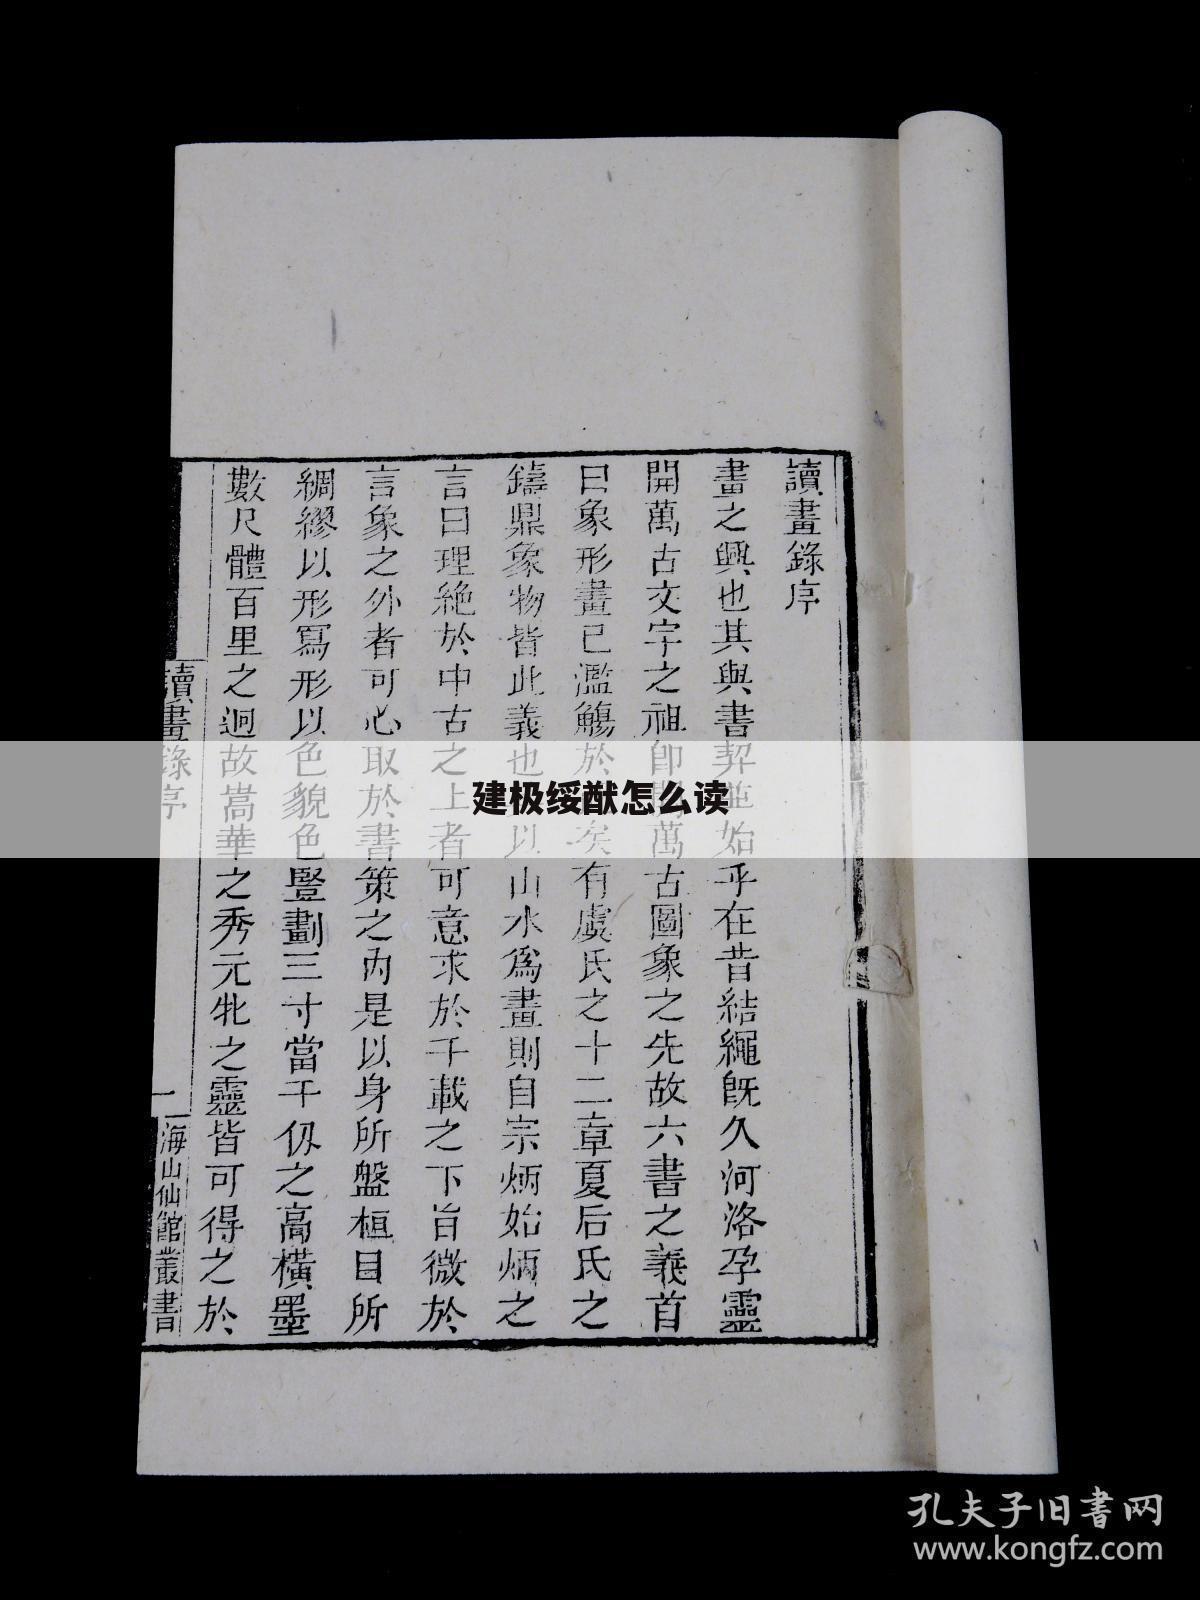 讀畫錄序
畫之興也其與書契並始乎在昔結繩旣久河洛孕靈
開萬古文字之祖卽開萬古圖象之先故六書之義首
曰象形畫已濫觴於矣有虞氏之十二章夏后氏之
鑄鼎象物皆此義也以山水爲畫則自宗炳始炳之
言曰理絶於中古之上者可意求於千載之下旨微於
言象之外者可心取於書策之內是以身所盤桓目所
綢繆以形寫形以色貌色豎劃三寸當千仭之高橫墨
數尺體百里之迥故嵩華之秀元牝之靈皆可得之於
讀畫錄序
一
海山仙館叢書
建极绥猷怎么读
孔夫子旧书网
www.kongfz.com